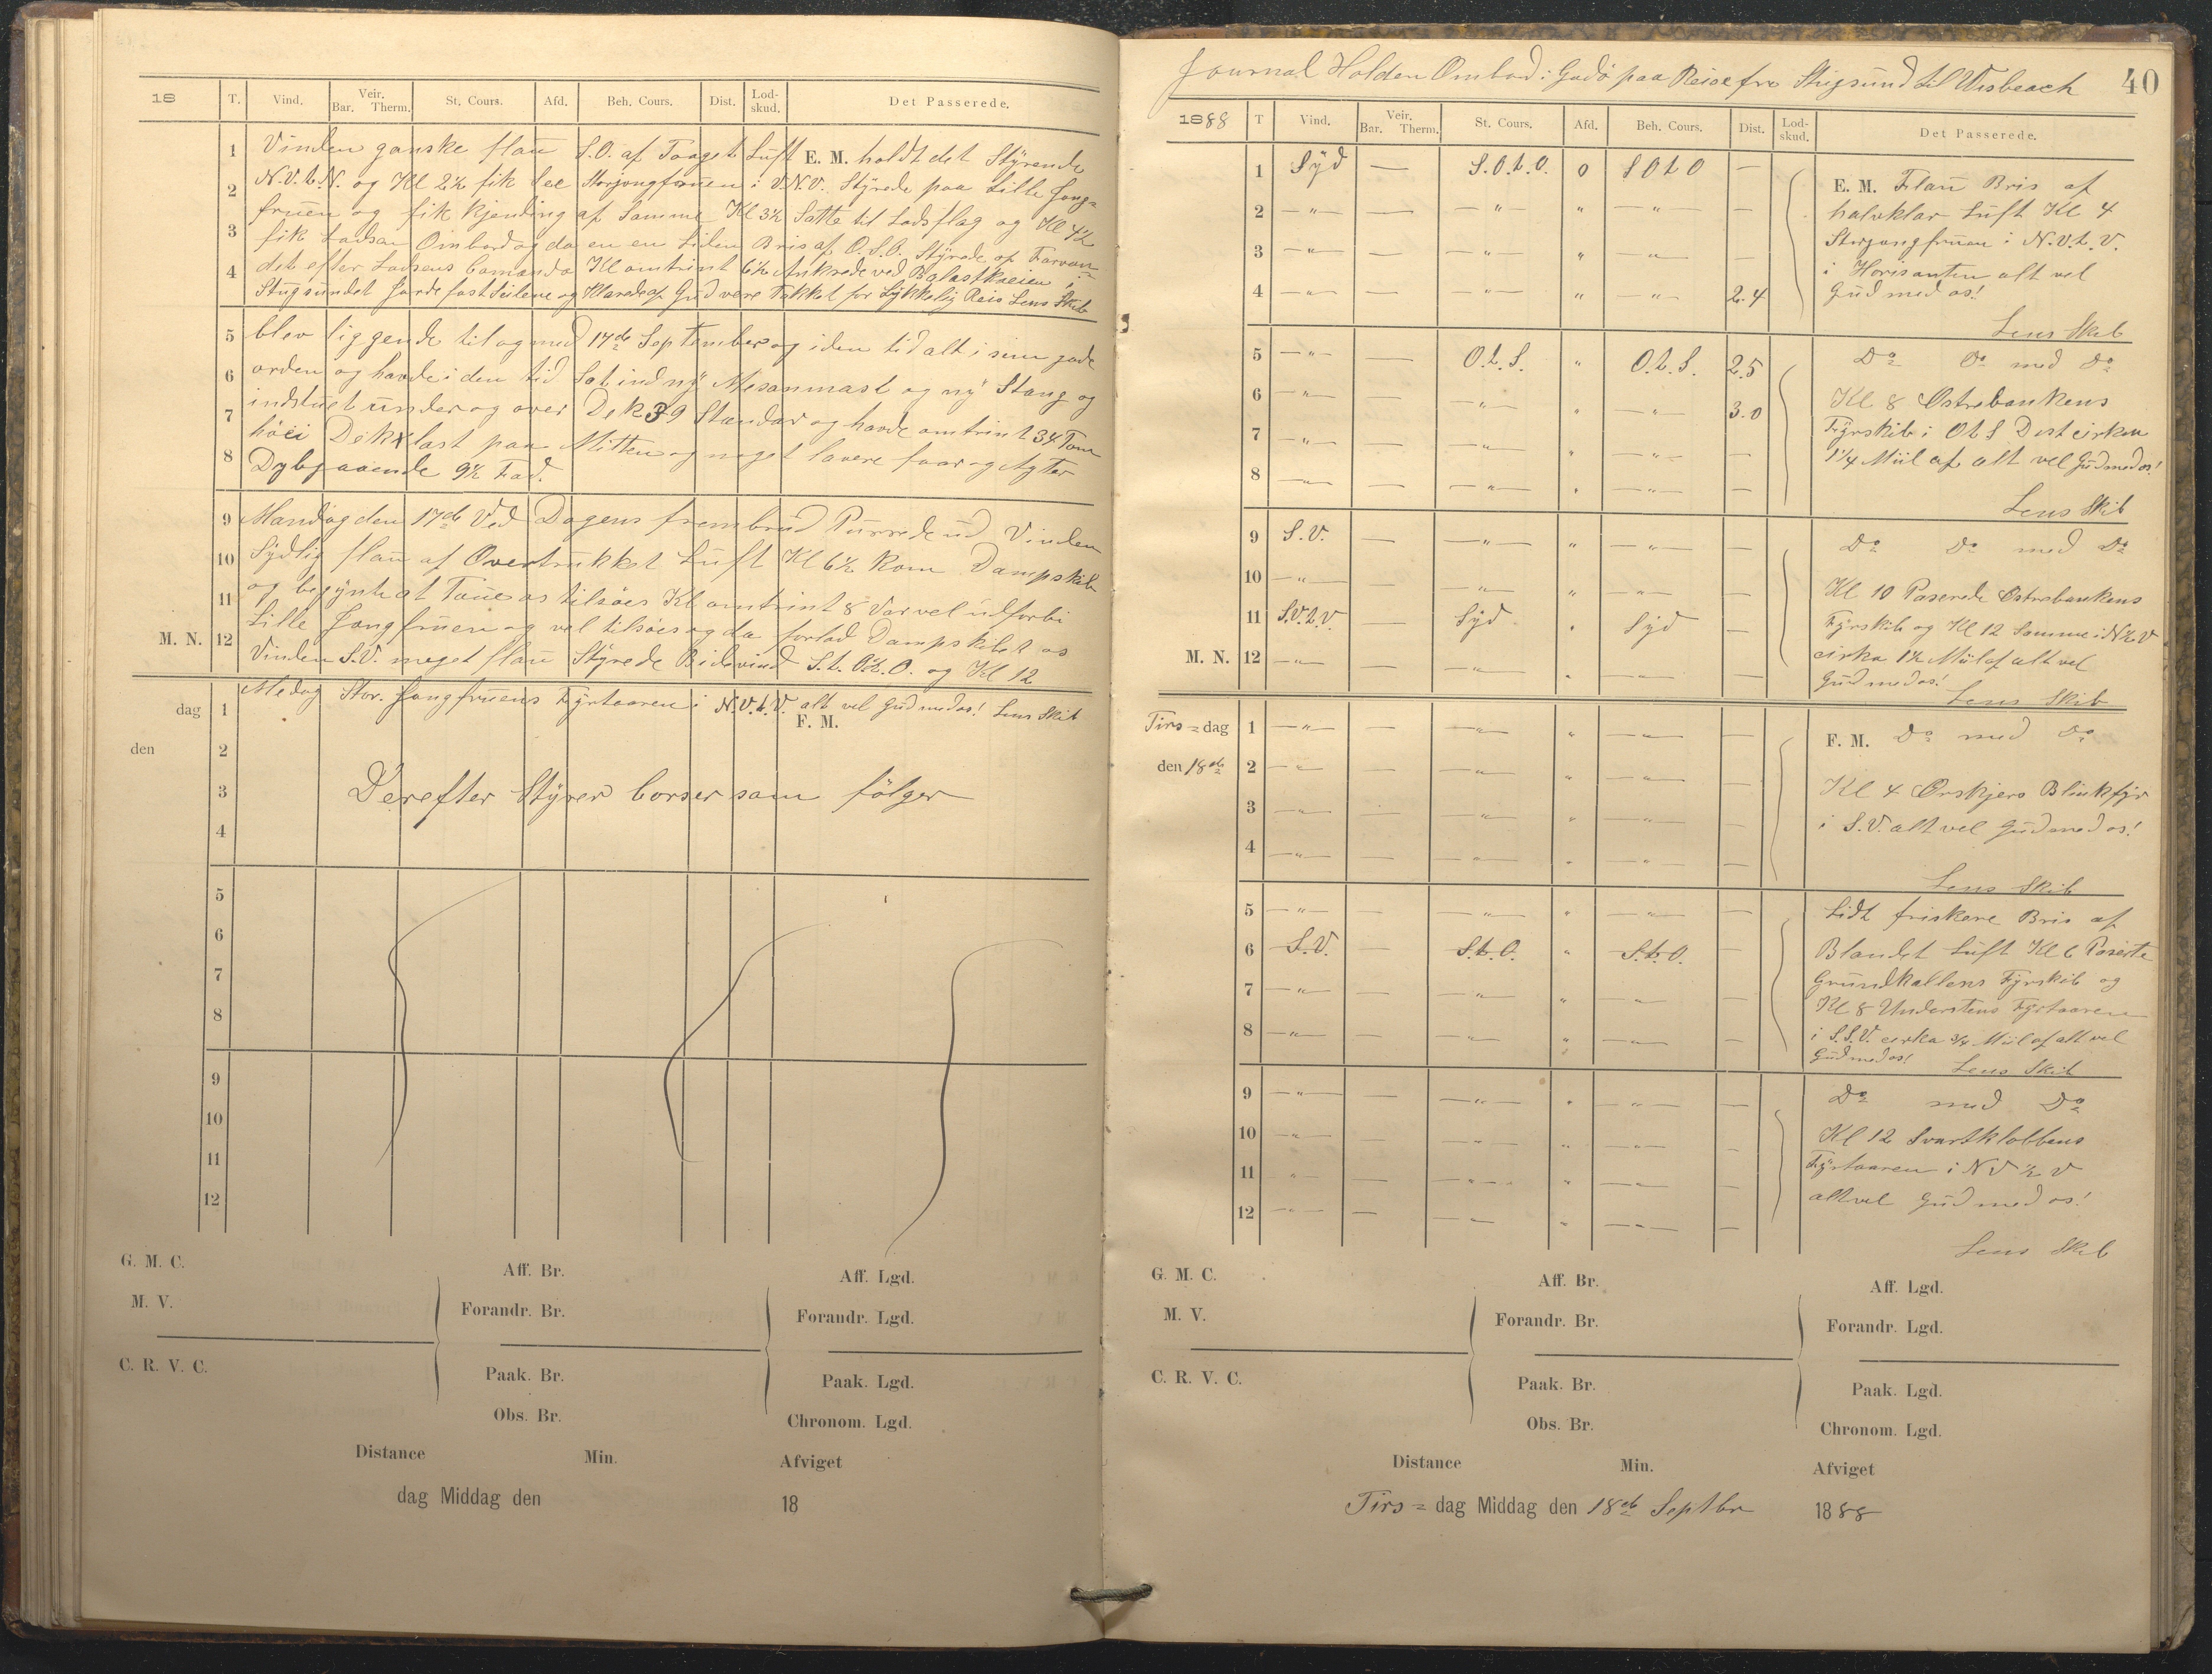 18 T. Vind. Veir. Bar. Therm. St. Cours. Afd. Beh. Cours. Dist. Lod-skud. Det Passerede.
1 Vinden ganske flau S.O. af Taaget Luft E. M. holdt det Styrende
2 N.V.t.N. og Kl 2½ fik See Storjongfruen i V.N.V. Styrede paa Lille Jong=
fruen og fik Kjending af Samme Kl 3½ Satte til Lodsflag og Kl 4½
3 fik Lodsen Ombord og da en en Liden Bris af O.S.O. Styrede op Farvan=
4 det efter Lodsens Comando Kl omtrint 6½ Ankrede ved Balastkaeien i
Stugsundet Gjorde fast Seilene og Klarede op Gud være Takket for Lykkelig Reis Lens Skib
5 blev liggende til og med 17de September og i den tid alt i sin gode
6 orden og havde i den tid Sat ind ny Mesanmast og ny Stang og
7 indstuet under og over Dek 39 Standar og havde omtrint 34 Tom
høi Dekslast paa Mitten og noget lavere faar og Agter
8 Dybgaaende 9½ Fod.
9 Mandag den 17de Ved Dagens frembrud Purrede ud Vinden
10 Sydlig flau af Overtrukket Luft Kl 6½ Kom Dampskib
11 og begynte at Taue os tilsøes Kl omtrint 8 Var vel udforbi
Lille Jongfruen og vel tilsøes og da forlod Dampskibet os
M. N. 12 Vinden S.V. meget flau Styrede Bidevind S.t.O.½.O. og Kl 12
dag 1 Medag Stor. Jongfruens Fyrtaaren i N.V.t.V. alt vel Gud med os! Lens Skib
F. M.
den 2
3 Derefter Styrer Corser som følger
4
5
6
7
8
9
10
11
12
G. M. C. Aff. Br. Aff. Lgd.
M. V. Forandr. Br. Forandr. Lgd.
C. R. V. C. Paak. Br. Paak. Lgd.
Obs. Br. Chronom. Lgd.
Distance Min. Afviget
dag Middag den 18
Journal Holden Ombord i Godö paa Reise fra Stugsund til Wisbeach 40
1888 T Vind. Veir. Bar. Therm. St. Cours. Afd. Beh. Cours. Dist. Lod-skud. Det Passerede.
1 Syd — S.O.t.O. 0 S O t O —
E. M. Flau Bris af
2 —"— — —"— " —"— —
halvklar Luft Kl 4
3 —"— — —"— " —"— —
Storjongfruen i N.V.t.V.
i Horisonten alt vel
4 —"— — —"— " —"— 2.4
Gud med os!
Lens Skib
5 —"— — O.t.S. " O.t.S. 2.5
Do Do med Do
6 —"— — —"— " —"— 3.0
Kl 8 Østrebankens
7 —"— — —"— " —"— —
Fyrskib i O t S Dist cirka
1¼ Miil af alt vel Gud med os!
8 —"— — —"— " —"— —
Lens Skib
9 S.V. — —"— " —"— —
Do Do med Do
10 —"— — —"— " —"— —
Kl 10 Paserede Østrebankens
11 S.V.t.V. — Syd " Syd —
Fyrskib og Kl 12 Samme i N½V
M. N. 12 —"— — —"— " —"— —
cirka 1½ Miil af alt vel
Gud med os!
Lens Skib
Tirs=dag 1 —"— — —"— " —"— —
F. M. Do med Do
den 18de 2 —"— — —"— " —"— —
Kl 4 Ørskjers Blinkfyr
3 —"— — —"— " —"— —
i S.V. alt vel Gud med os!
4 —"— — —"— " —"— —
Lens Skib
5 —"— — —"— " —"— —
Lidt friskere Bris af
6 S.V. — S.t.O. " S.t.O. —
Blandet Luft Kl 6 Paserte
7 —"— — —"— " —"— —
Grundkallens Fyrskib og
Kl 8 Understens Fyrtaaren
8 —"— — —"— " —"— —
i S.S.V. cirka ¾ Miil af alt vel
Gud med os! Lens Skib
9 —"— — —"— " —"— —
Do med Do
10 —"— — —"— " —"— —
Kl 12 Svartklobbens
11 —"— — —"— " —"— —
Fyrtaaren i N V ½ V
alt vel Gud med os!
12 —"— — —"— " —"— —
Lens Skib
G. M. C. Aff. Br. Aff. Lgd.
M. V. Forandr. Br. Forandr. Lgd.
C. R. V. C. Paak. Br. Paak. Lgd.
Obs. Br. Chronom. Lgd.
Distance Min. Afviget
Tirs=dag Middag den 18de Septbr 1888